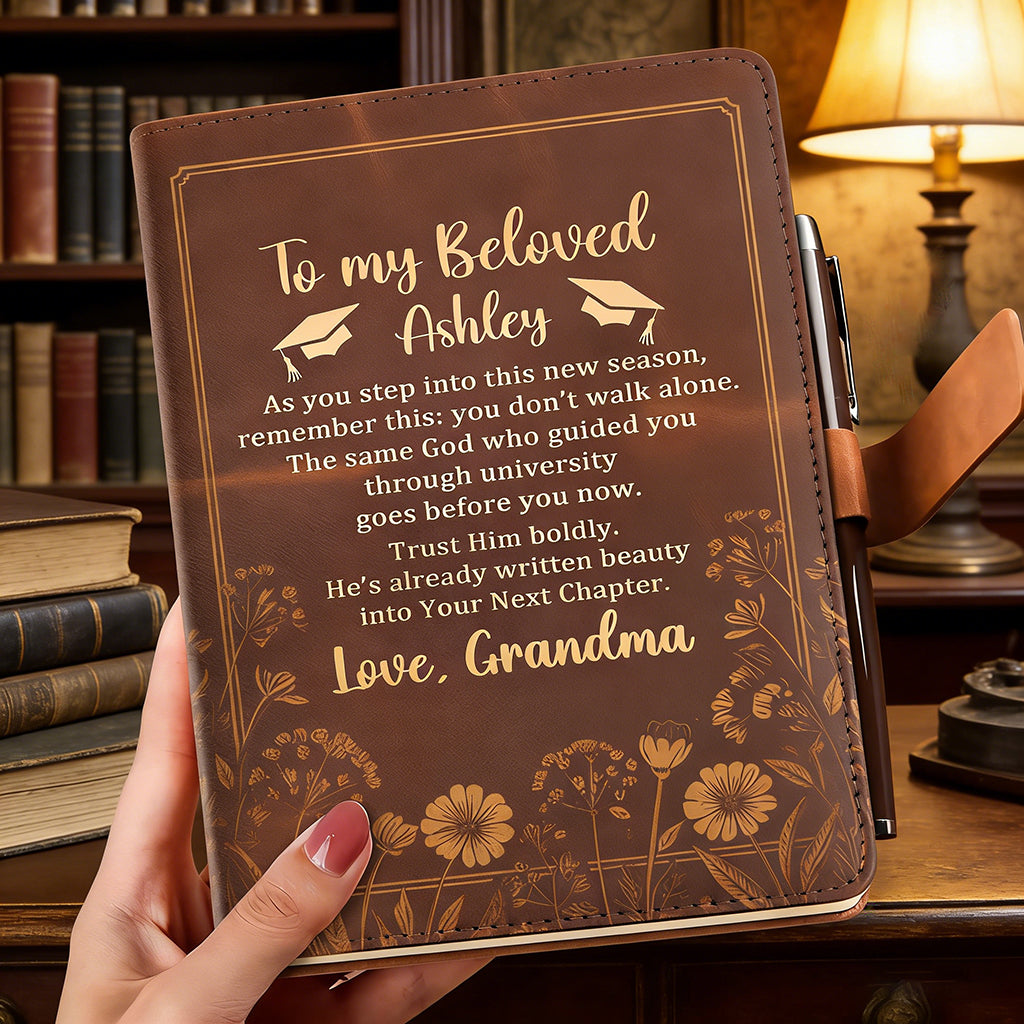 To my Beloved
Ashley
As you step into this new season,
remember this: you don't walk alone.
The same God who guided you
through university
goes before you now.
Trust Him boldly.
He's already written beauty
into Your Next Chapter.
Love, Grandma